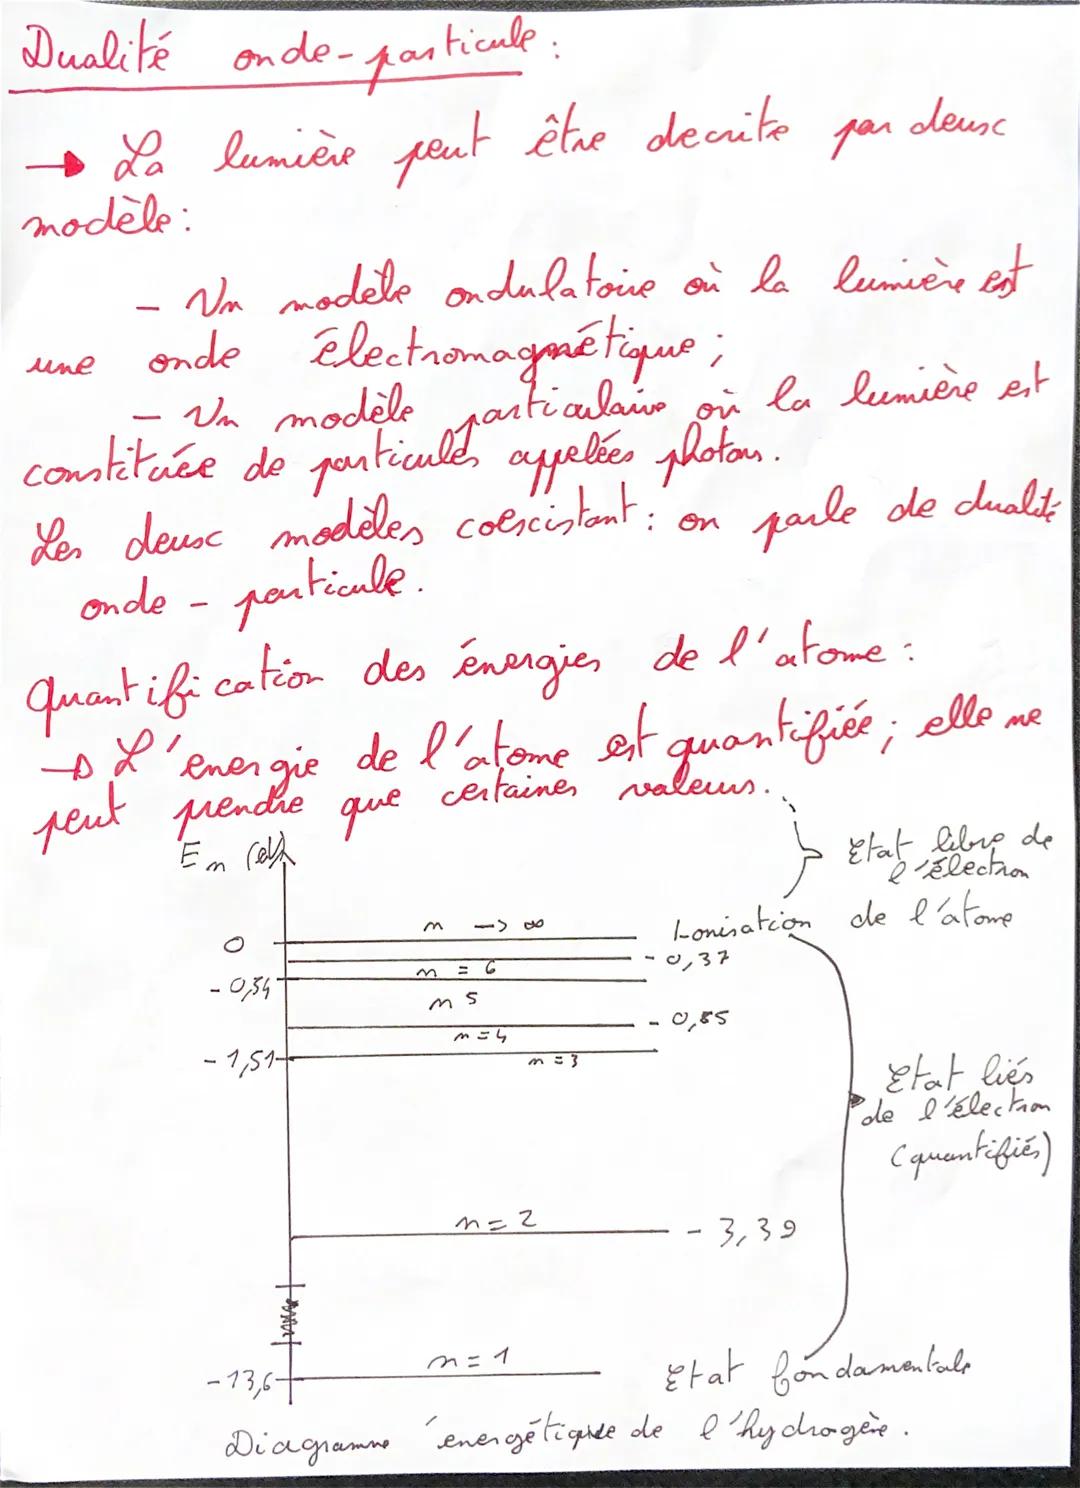 Dualité onde-particule :
→ La lumière peut être decrite par deux
modèle :
- Un modèle ondulatoire où la lumière est
une onde électromagnétique ;
- Un modèle particulaire où la lumière est
constituée de particules appelées photons.
Les deux modèles coexistant : on parle de dualité
onde - particule.
Quantification des énergies de l'atome :
→ L'énergie de l'atome est quantifiée ; elle ne
peut prendre que certaines valeurs.
En (eV)
Etat libre de
l'électron
de l'atome
n → ∞
Ionisation
0
- 0,37
n = 6
- 0,54
n 5
- 0,85
n = 4
- 1,51
n = 3
Etat liés
de l'électron
(quantifiés)
n = 2
- 3,39
n = 1
-13,6
Etat fondamentale
Diagramme énergétique de l'hydrogène.